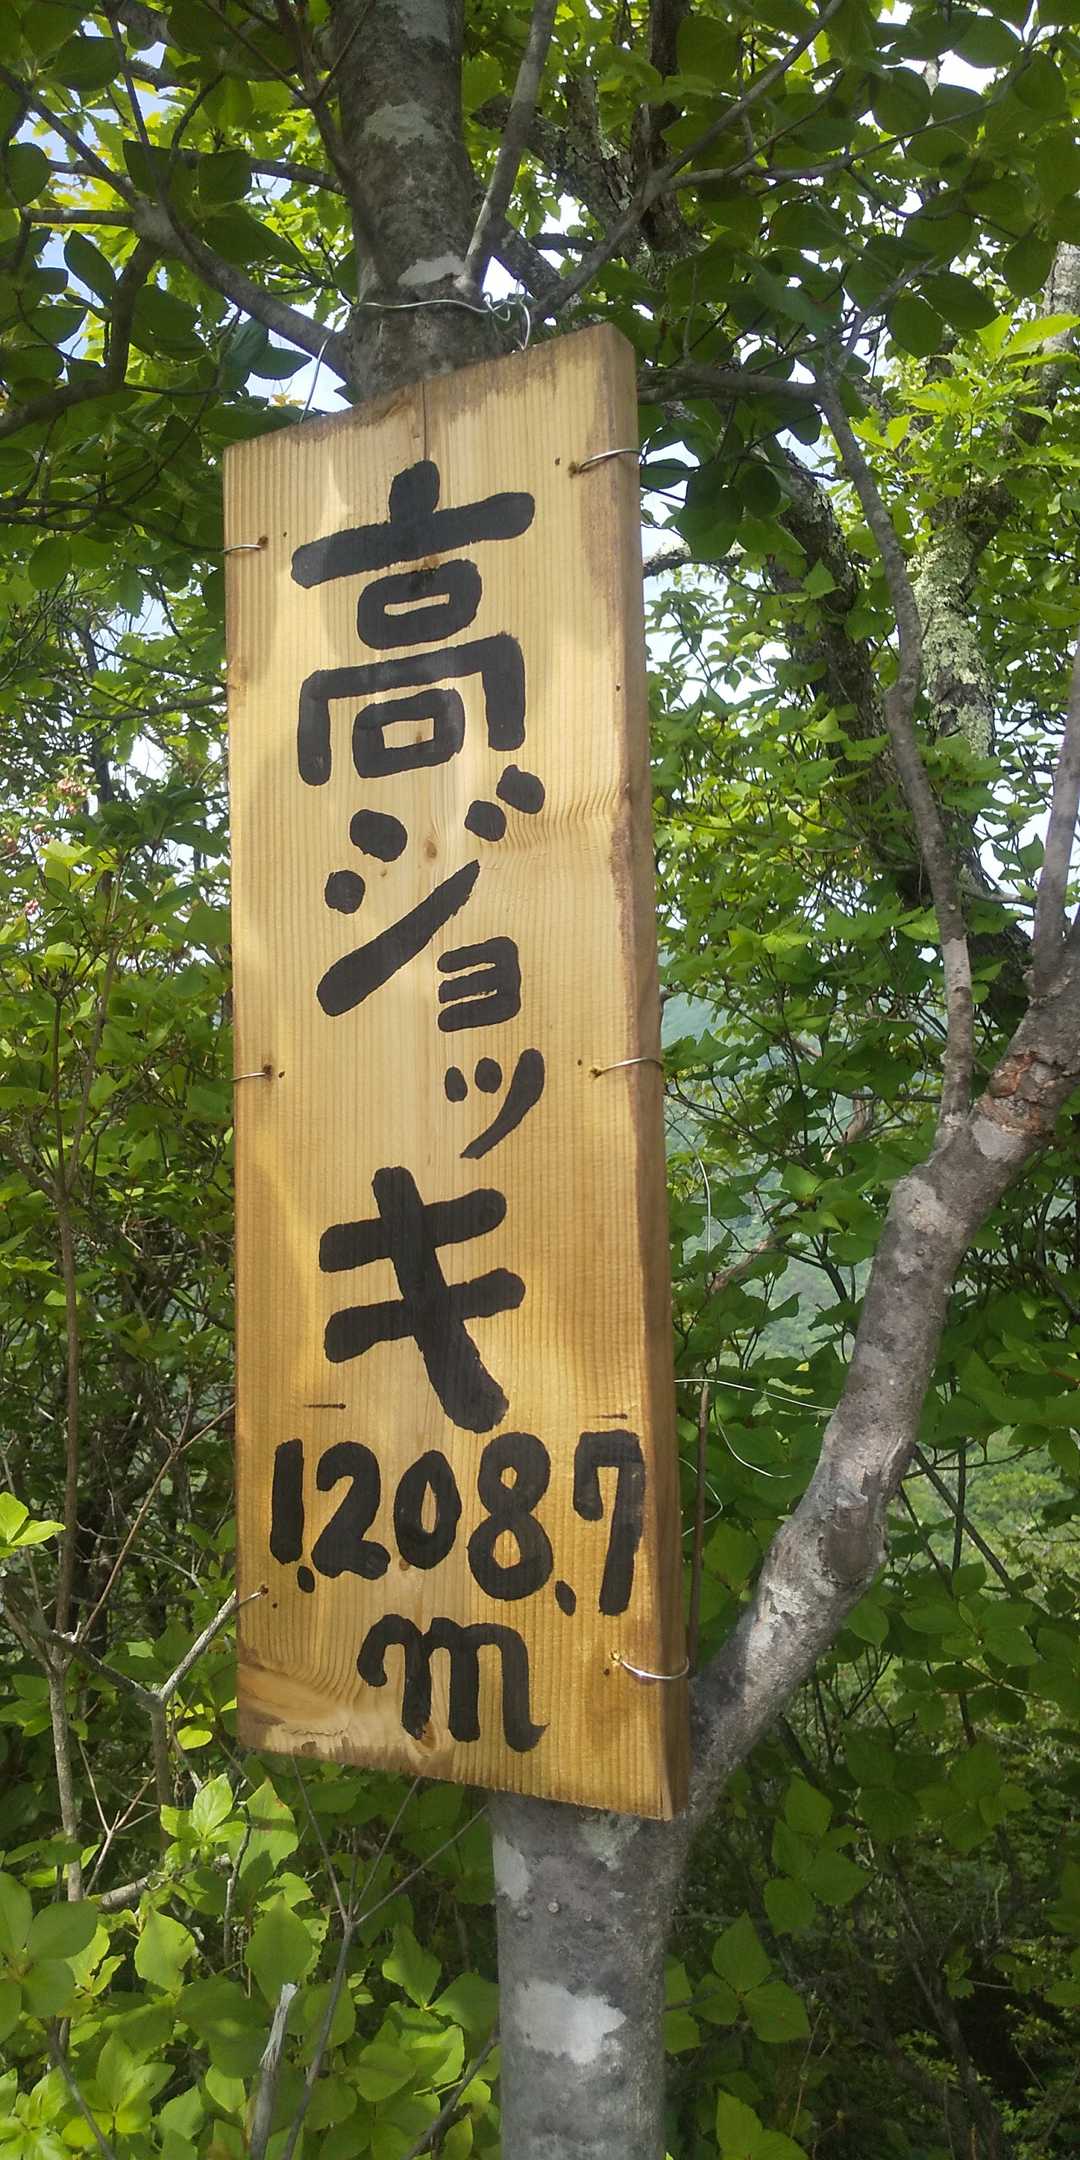 高ジョッキ
1,208.7
m